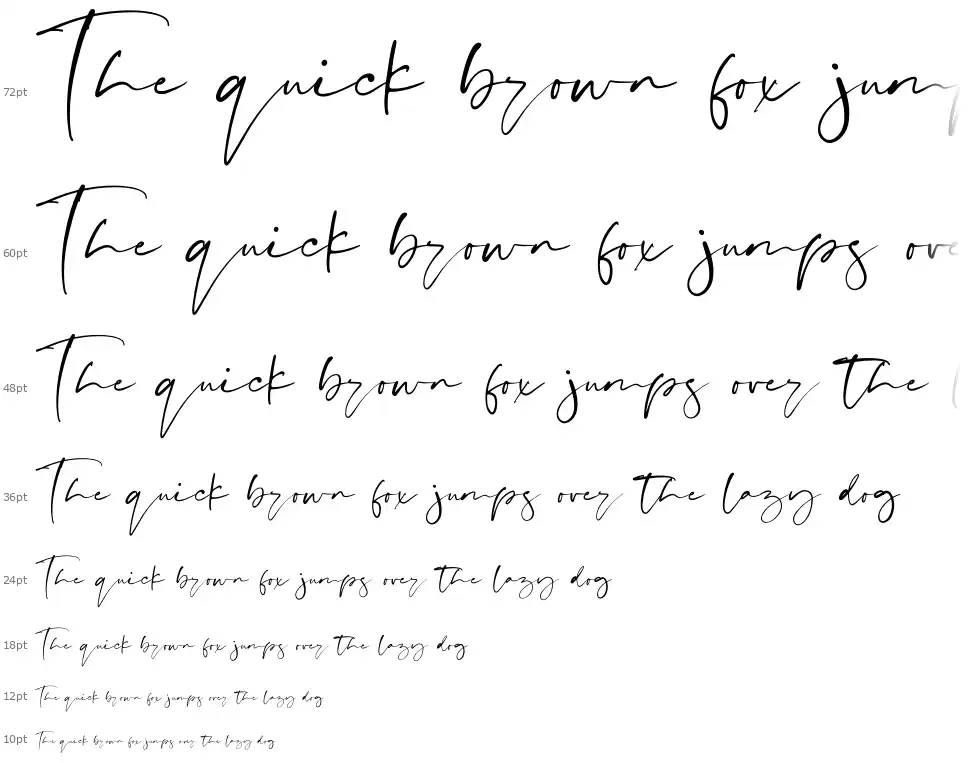 72pt The quick brown fox jum
60pt The quick brown fox jumps ove
48pt The quick brown fox jumps over the
36pt The quick brown fox jumps over the lazy dog
24pt The quick brown fox jumps over the lazy dog
18pt The quick brown fox jumps over the lazy dog
12pt The quick brown fox jumps over the lazy dog
10pt The quick brown fox jumps over the lazy dog